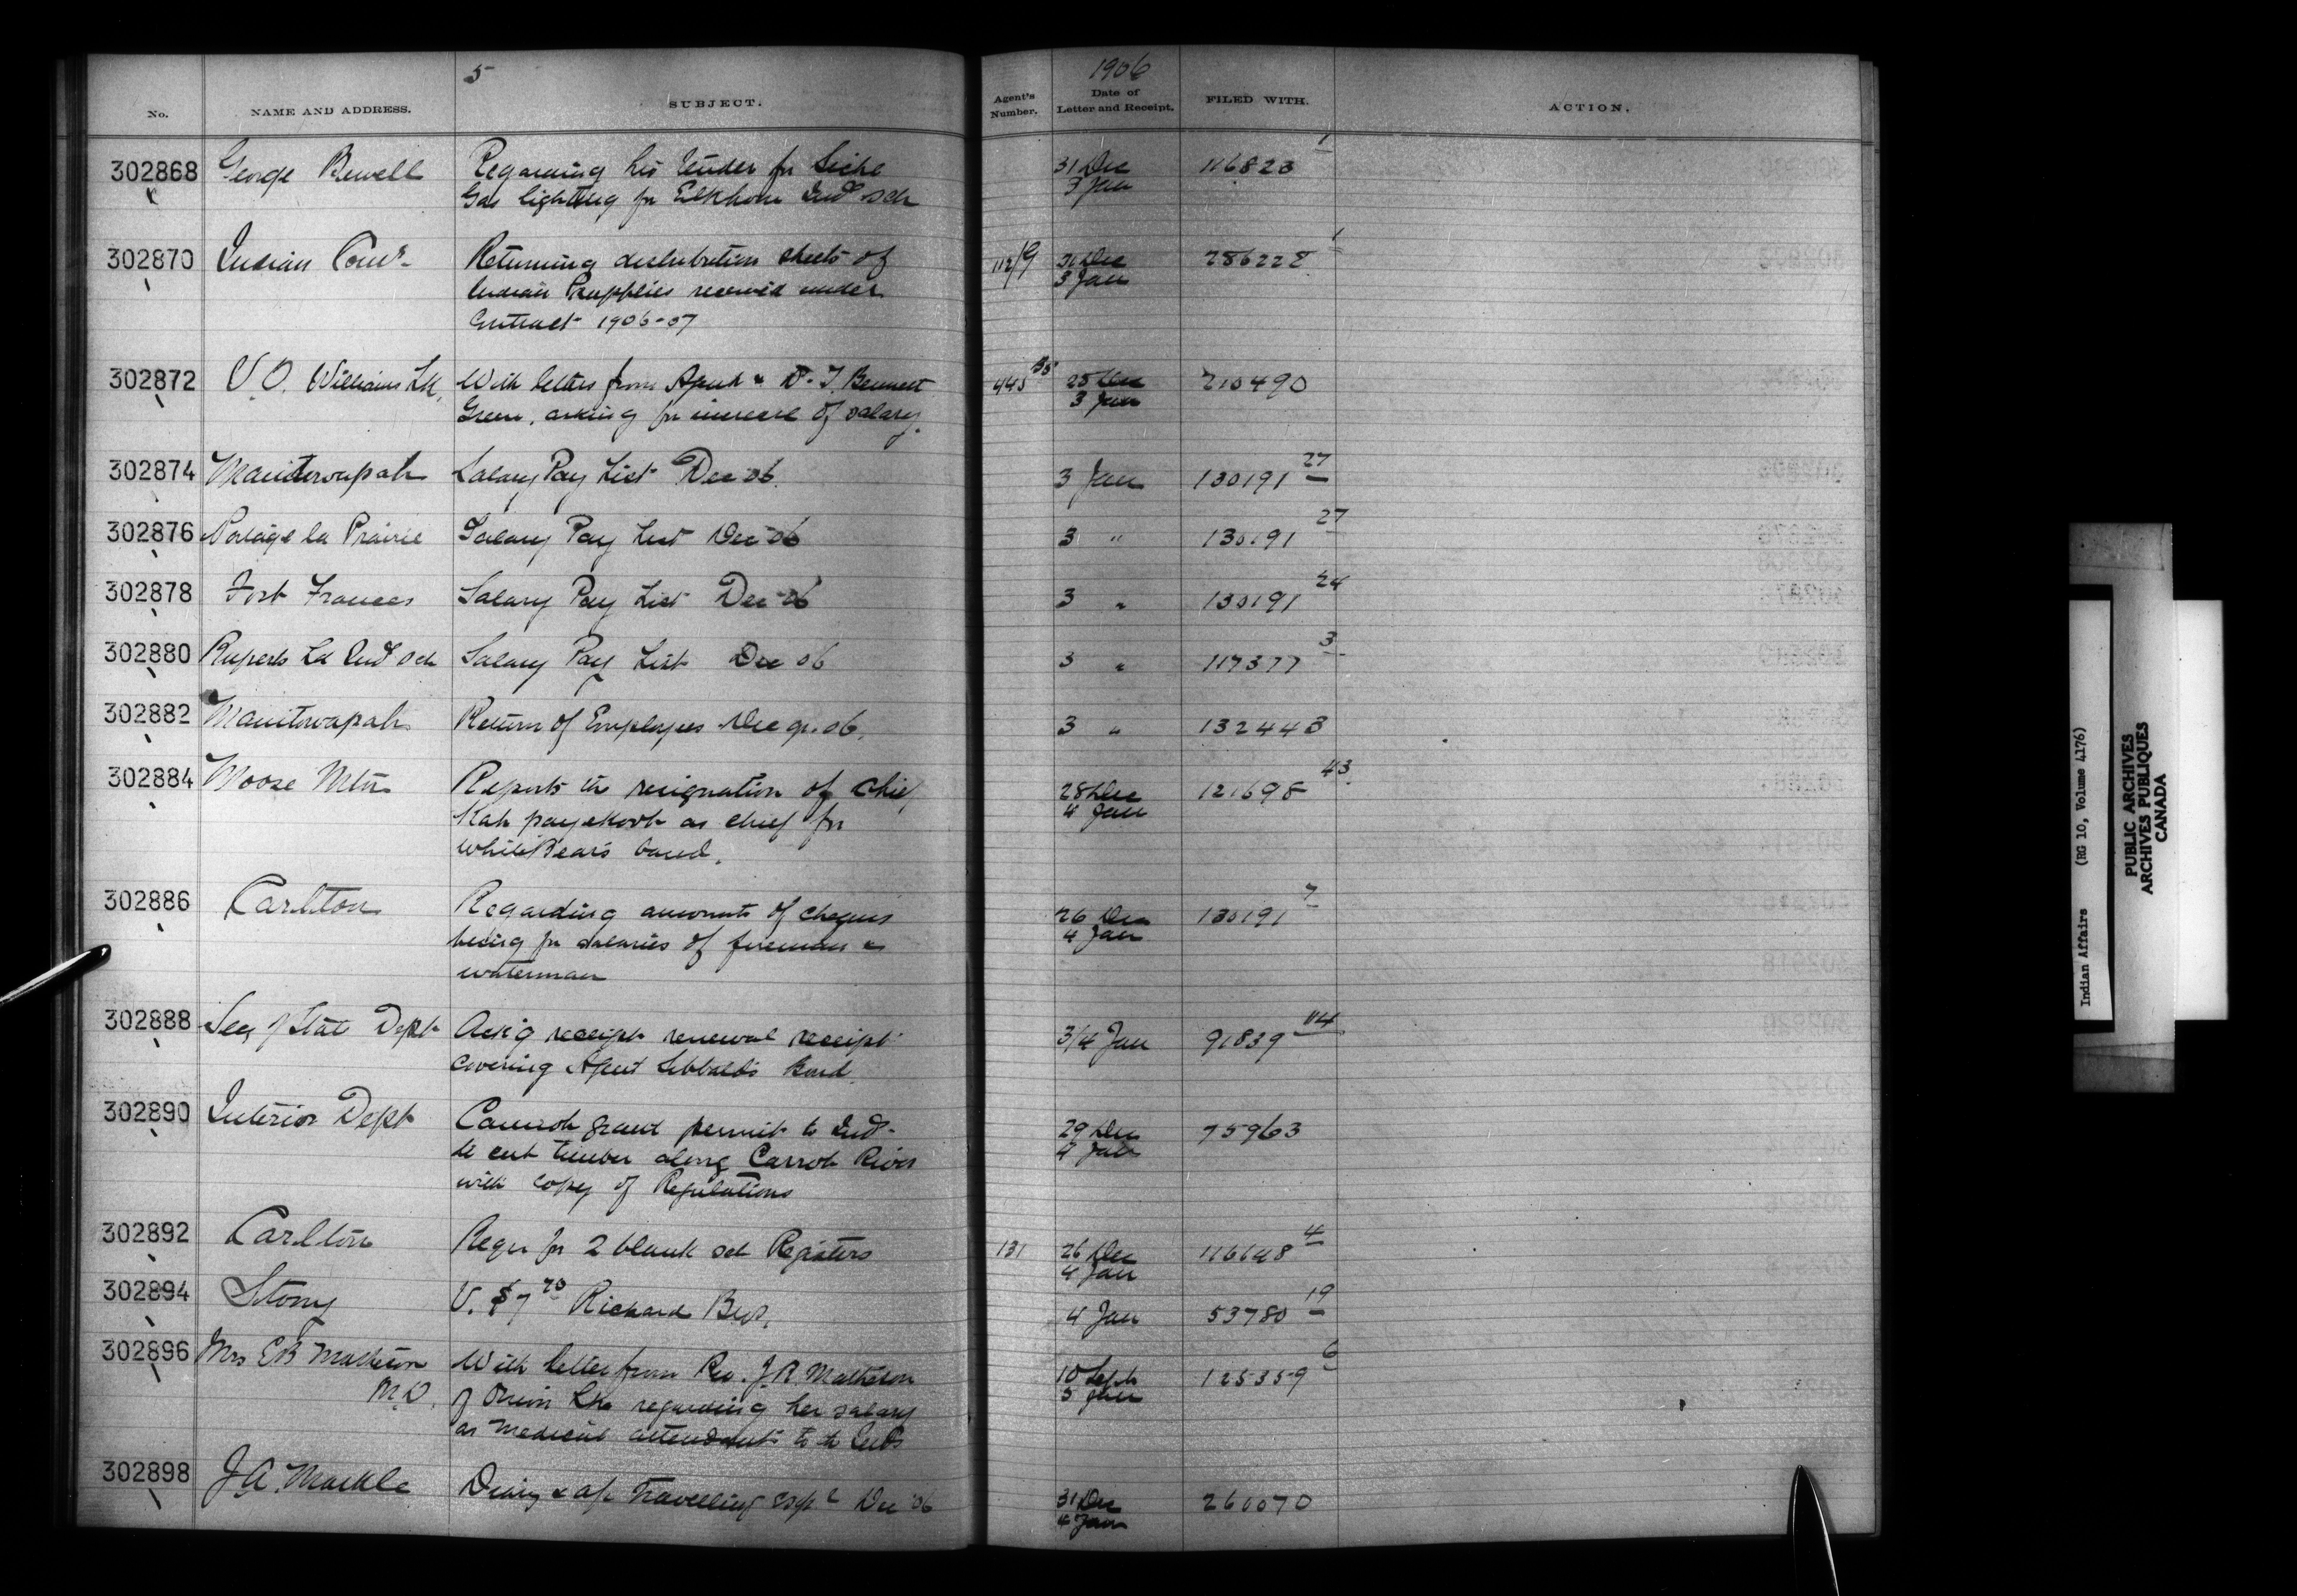 5
1906
No.
NAME AND ADDRESS.
SUBJECT.
Agent's Number.
Date of Letter and Receipt.
FILED WITH.
ACTION.
302868 George Bewell Regarding his tender for Siche 31 Dec 116823 1
Gas lighting for Elkhorn Ind Sch 3 Jan
302870 Indian Comr Returning distribution sheets of 112/9 31 Dec 286228 1
Indian supplies received under 3 Jan
Contract 1906-07
302872 V.O. Williams Lk, With letters from Agent & D. J. Bennett 445 28 Dec 210490
Green, asking for increase of salary. 3 Jan
302874 Manitowapah Salary Pay List Dec 06. 3 Jan 130191 27
302876 Portage la Prairie Salary Pay List Dec 06 3 " 130191 27
302878 Fort Frances Salary Pay List Dec 06 3 " 130191 24
302880 Ruperts Ld Ind Sch Salary Pay List Dec 06 3 " 117377 3
302882 Manitowapah Return of Employees Dec qr. 06. 3 " 132443
302884 Moose Mtn Reports the resignation of Chief 28 Dec 121698 43
Kah pay as chief for 4 Jan
White Bears band.
302886 Carlton Regarding amounts of cheques 26 Dec 130191 7
being for salaries of fireman & 4 Jan
waterman
302888 Secy of State Dept Ack'g receipt renewal receipt 3/4 Jan 91839 114
covering Agent Sibbald's Bond
302890 Interior Dept Cannot grant permit to Inds 29 Dec 75963
to cut timber along Carrot River 4 Jan
with copy of Regulations
302892 Carlton Requ for 2 blank sch Registers 131 26 Dec 116648 4
4 Jan
302894 Stony V. $7 70 Richard Bros. 4 Jan 53780 19
302896 Mrs EB Matheson With letter from Rev. J.R. Matheson 10 Sept 125359 6
M.D. of Onion Lke regarding her salary 5 Jan
as medical attendant to the Inds
302898 J.A. Markle Diary & a/c Travelling exps Dec '06 31 Dec 260070
4 Jan
Indian Affairs (RG 10, Volume 4176)
PUBLIC ARCHIVES
ARCHIVES PUBLIQUES
CANADA